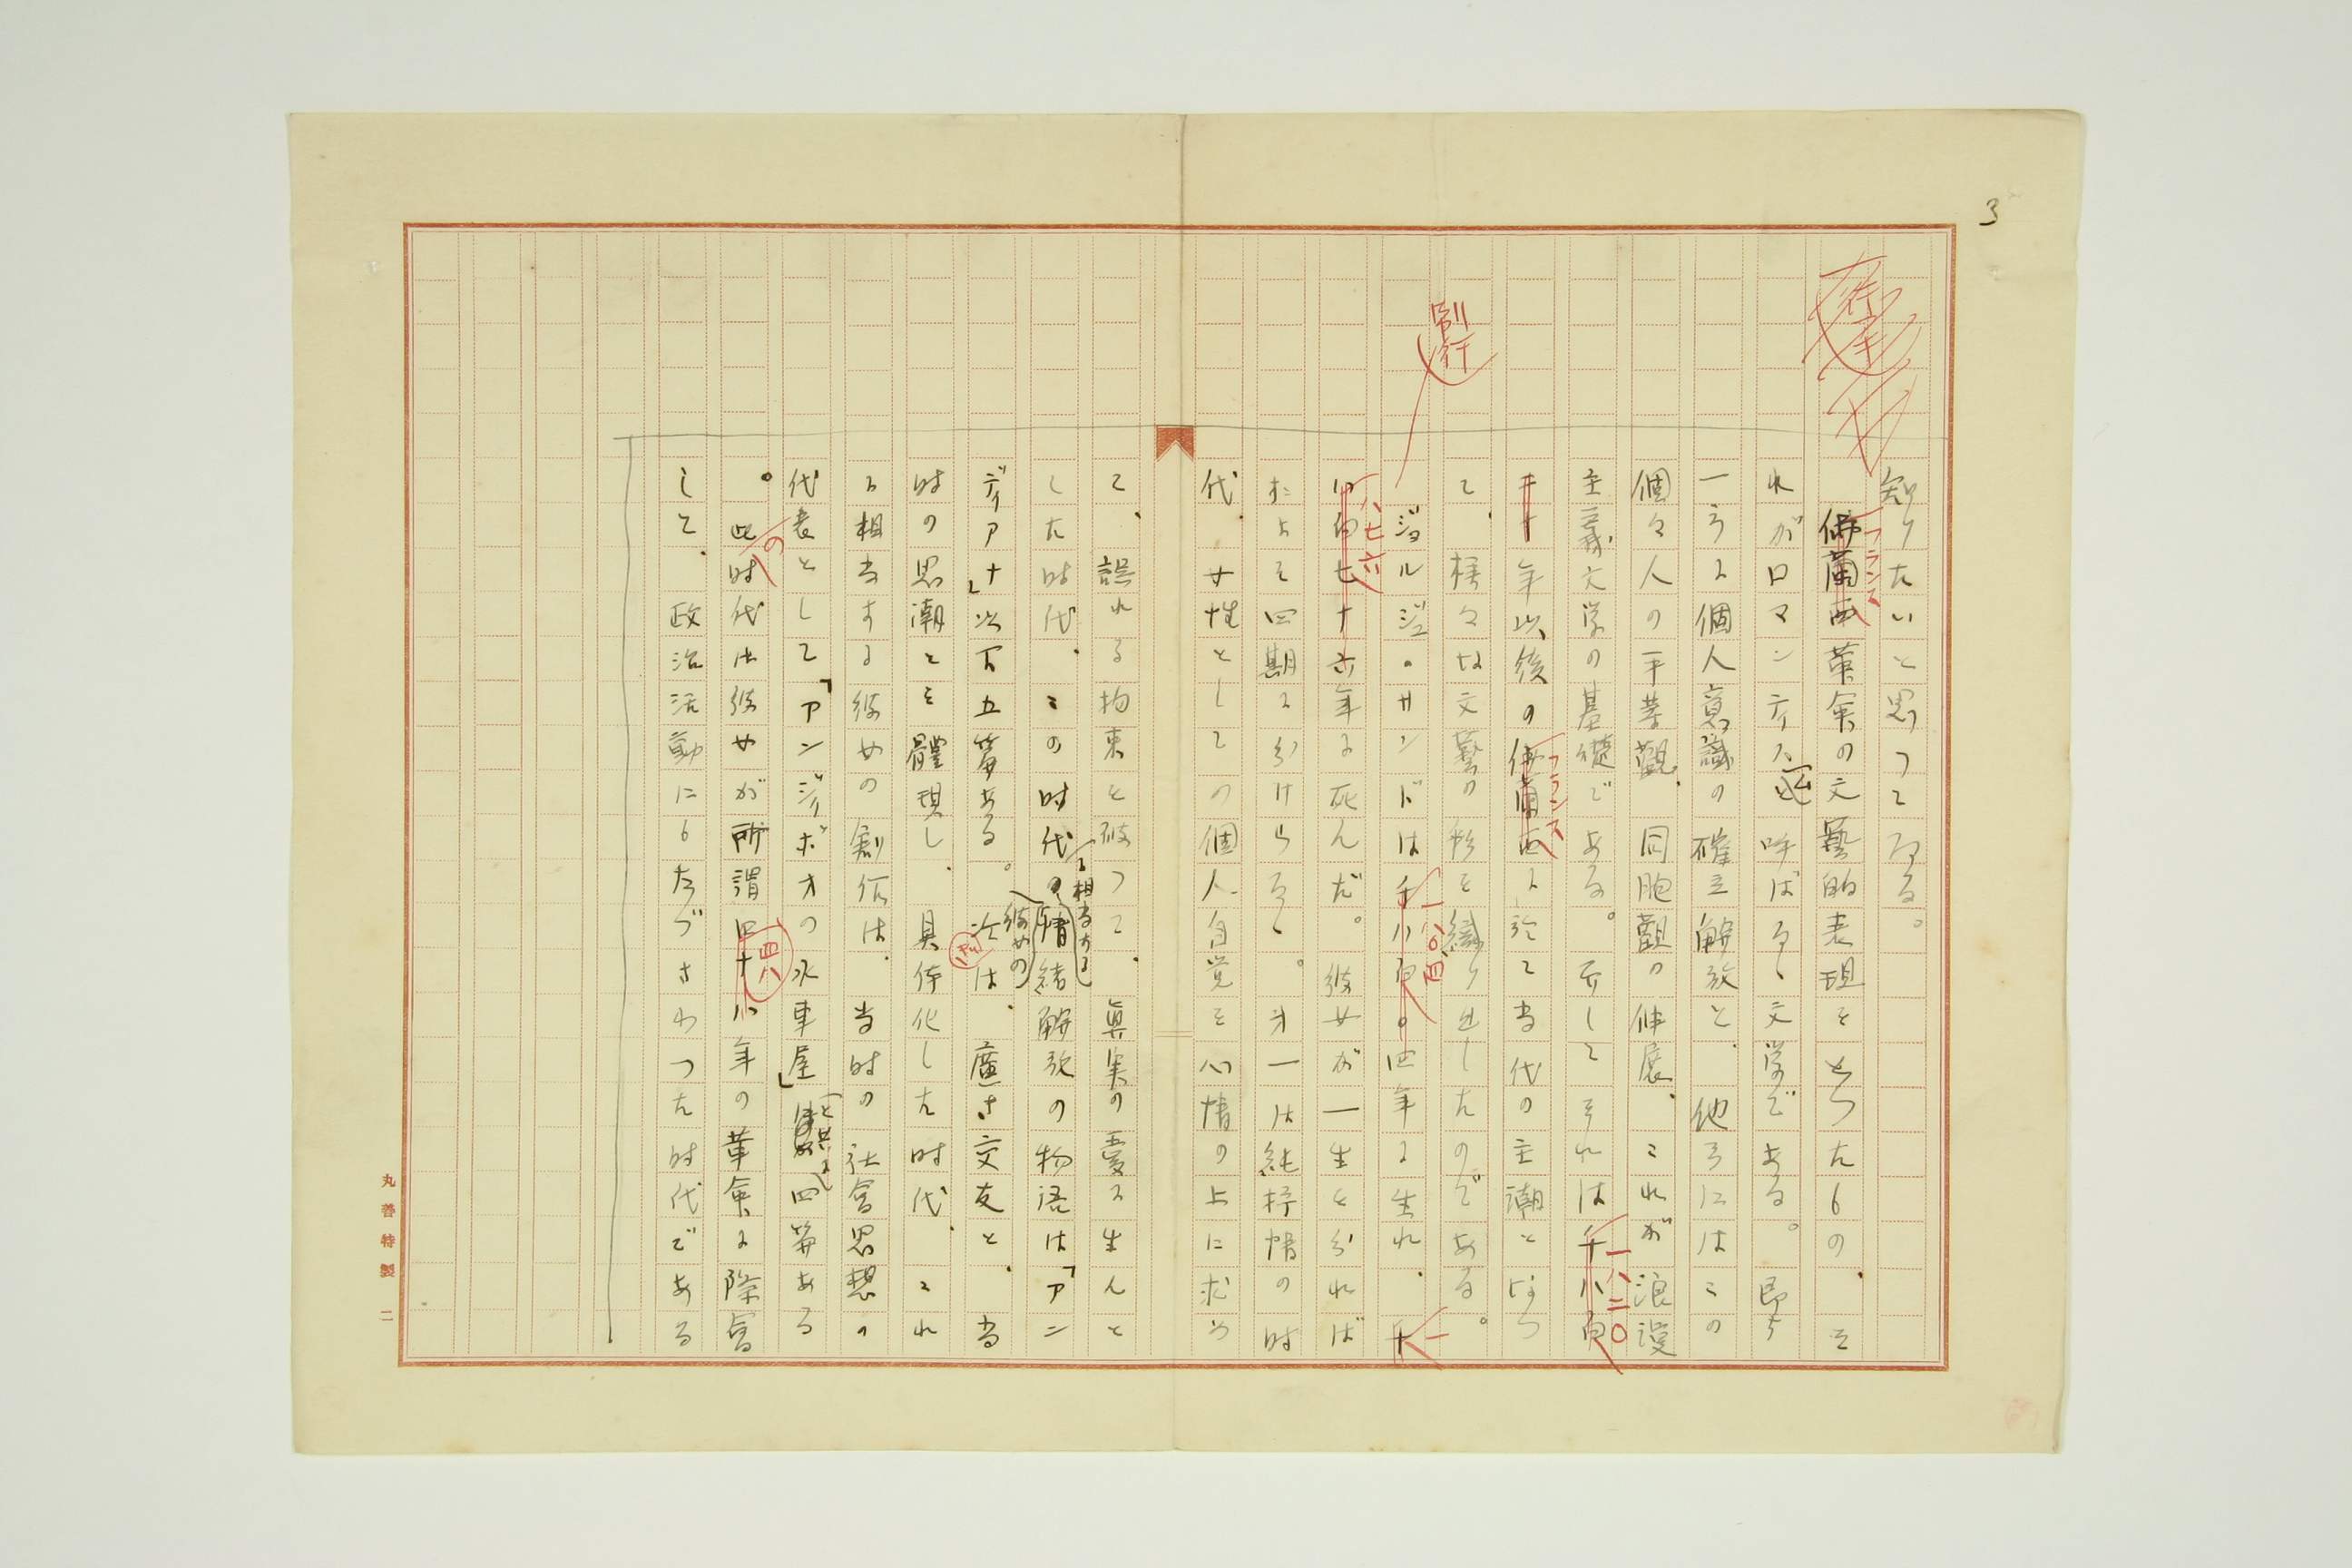 3
知りたいと思つてゐる。
フランス
佛蘭西革命の文藝的表現をとつたもの、そ
れがロマンティズムと呼ばるゝ文学である。即ち
一方に個人意識の確立解放と、他方にはこの
個々人の平等觀、同胞觀の伸展、これが浪漫
主義文学の基礎である。而してそれは千八百
一八二〇
二十年以後の佛蘭西に於て当代の主潮となつ
フランス
て、様々な文藝の形を織り出したのである。
別行
ジョルジュ・サンドは千八百〇四年に生れ、千
一八〇四
一
八百七十六年に死んだ。彼女が一生を分れば
八七六
およそ四期に分けらるゝ。才一は純抒情の時
代、女性としての個人自覚を心情の上に求め
て、誤れる拘束を破つて、眞実の愛に生んと
した時代、この時代の情緒解放の物語は「アン
に相当する
彼女の
ディアナ」以下五篇ある。次は、廣き交友と、当
時の思潮とを體現し、具体化した時代、これ
に相当する彼女の創作は、当時の社会思想の
代表として「アンジィボオの水車屋」四篇ある
と共に
。此時代は彼女が所謂四十八年の革命に際會
の
四八
して、政治活動にもたづさわつた時代である
丸善特製 二